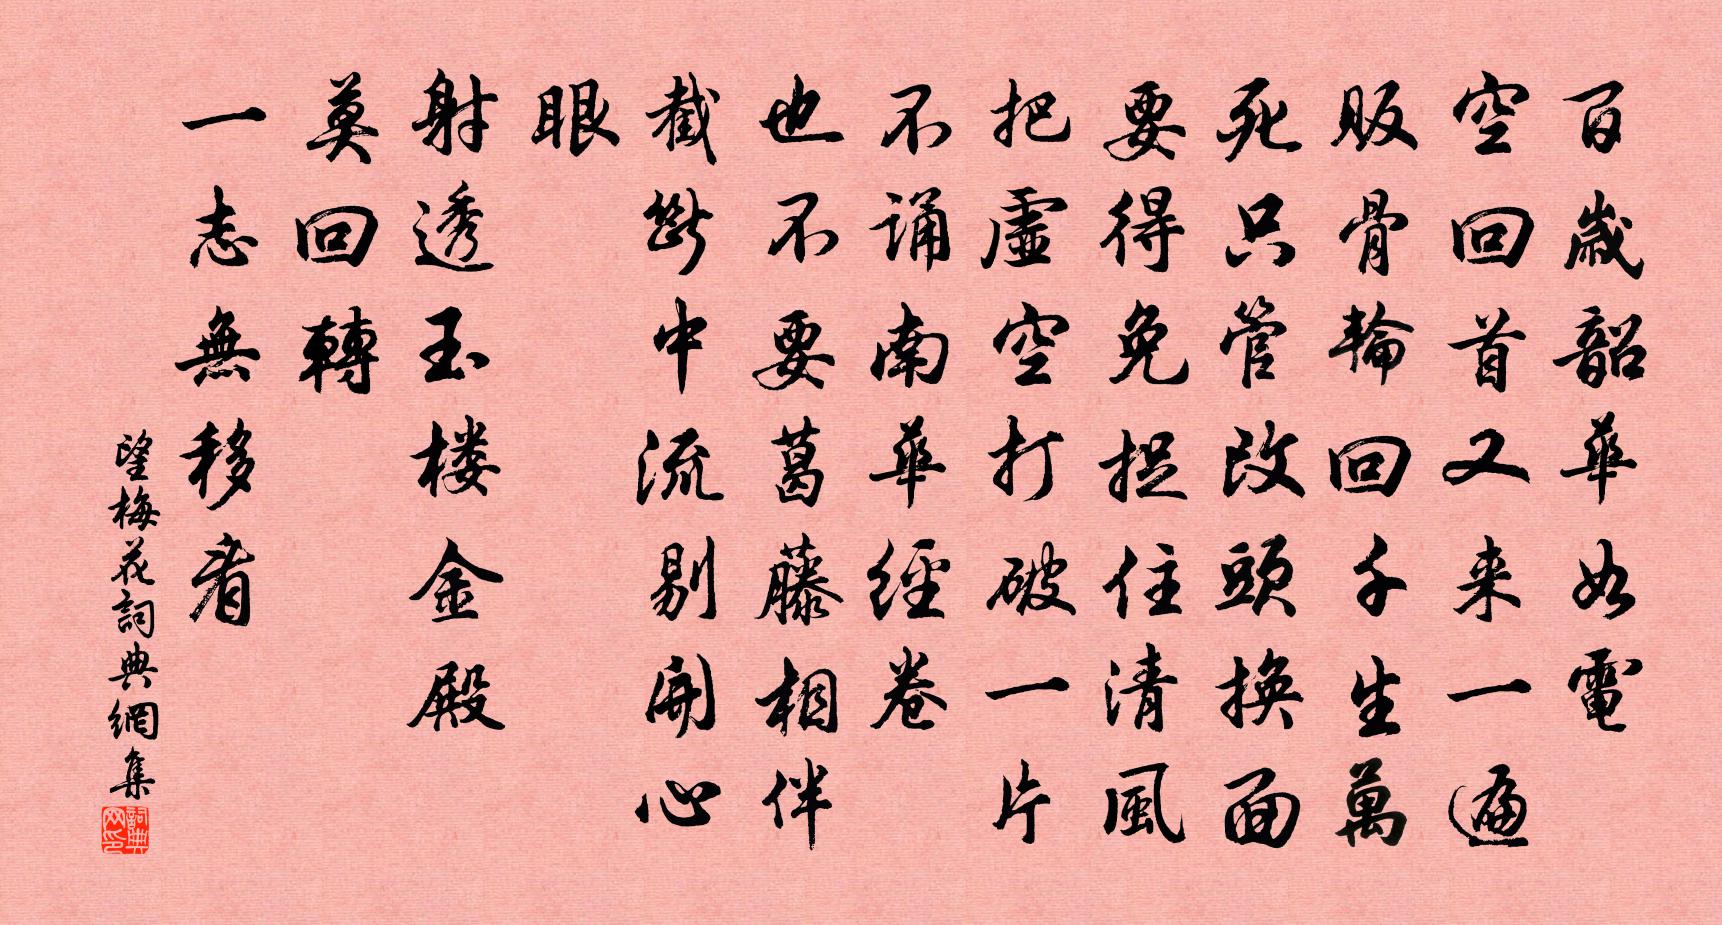 百歲韶華如電
空回首又来一遍
販骨輪回千生萬
死只管改頭換面
要得免捉住清風
把虛空打破一片
不誦南華經卷
也不要葛藤相伴
截斷中流剔開心
眼
射透玉楼金殿
莫回轉
一志無移看
望梅花詞典網集
詞典网印